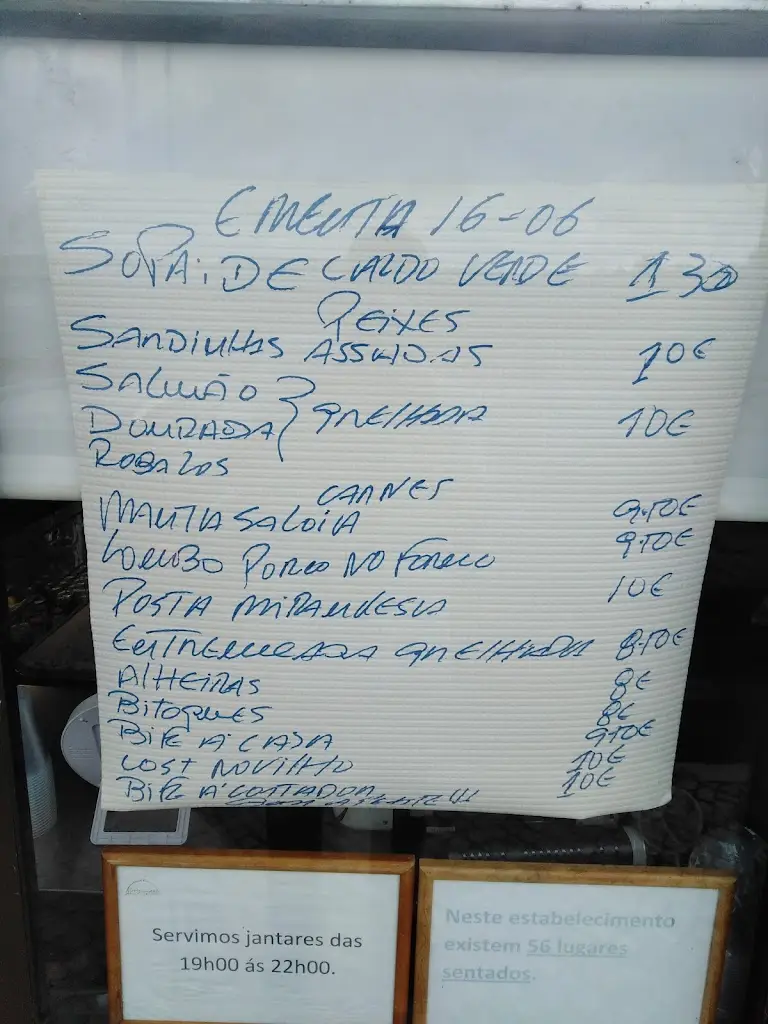 EMENTA 16-06
SOPA: DE CALDO VERDE 1 30
PEIXES
SARDINHAS ASSADAS 10€
SALMÃO
DOURADA } GRELHADA 10€
ROBALOS
CARNES
MANTA SALOIA 9.50€
LOMBO PORCO NO FORNO 9.50€
POSTA MIRANDESA 10€
ENTREMEADA GRELHADA 8.50€
ALHEIRAS 8€
BITOQUES 8€
BIFE À CASA 9.50€
COST NOVILHO 10€
BIFE À CORTADOR 10€
Servimos jantares das
19h00 ás 22h00.
Neste estabelecimento
existem 56 lugares
sentados.